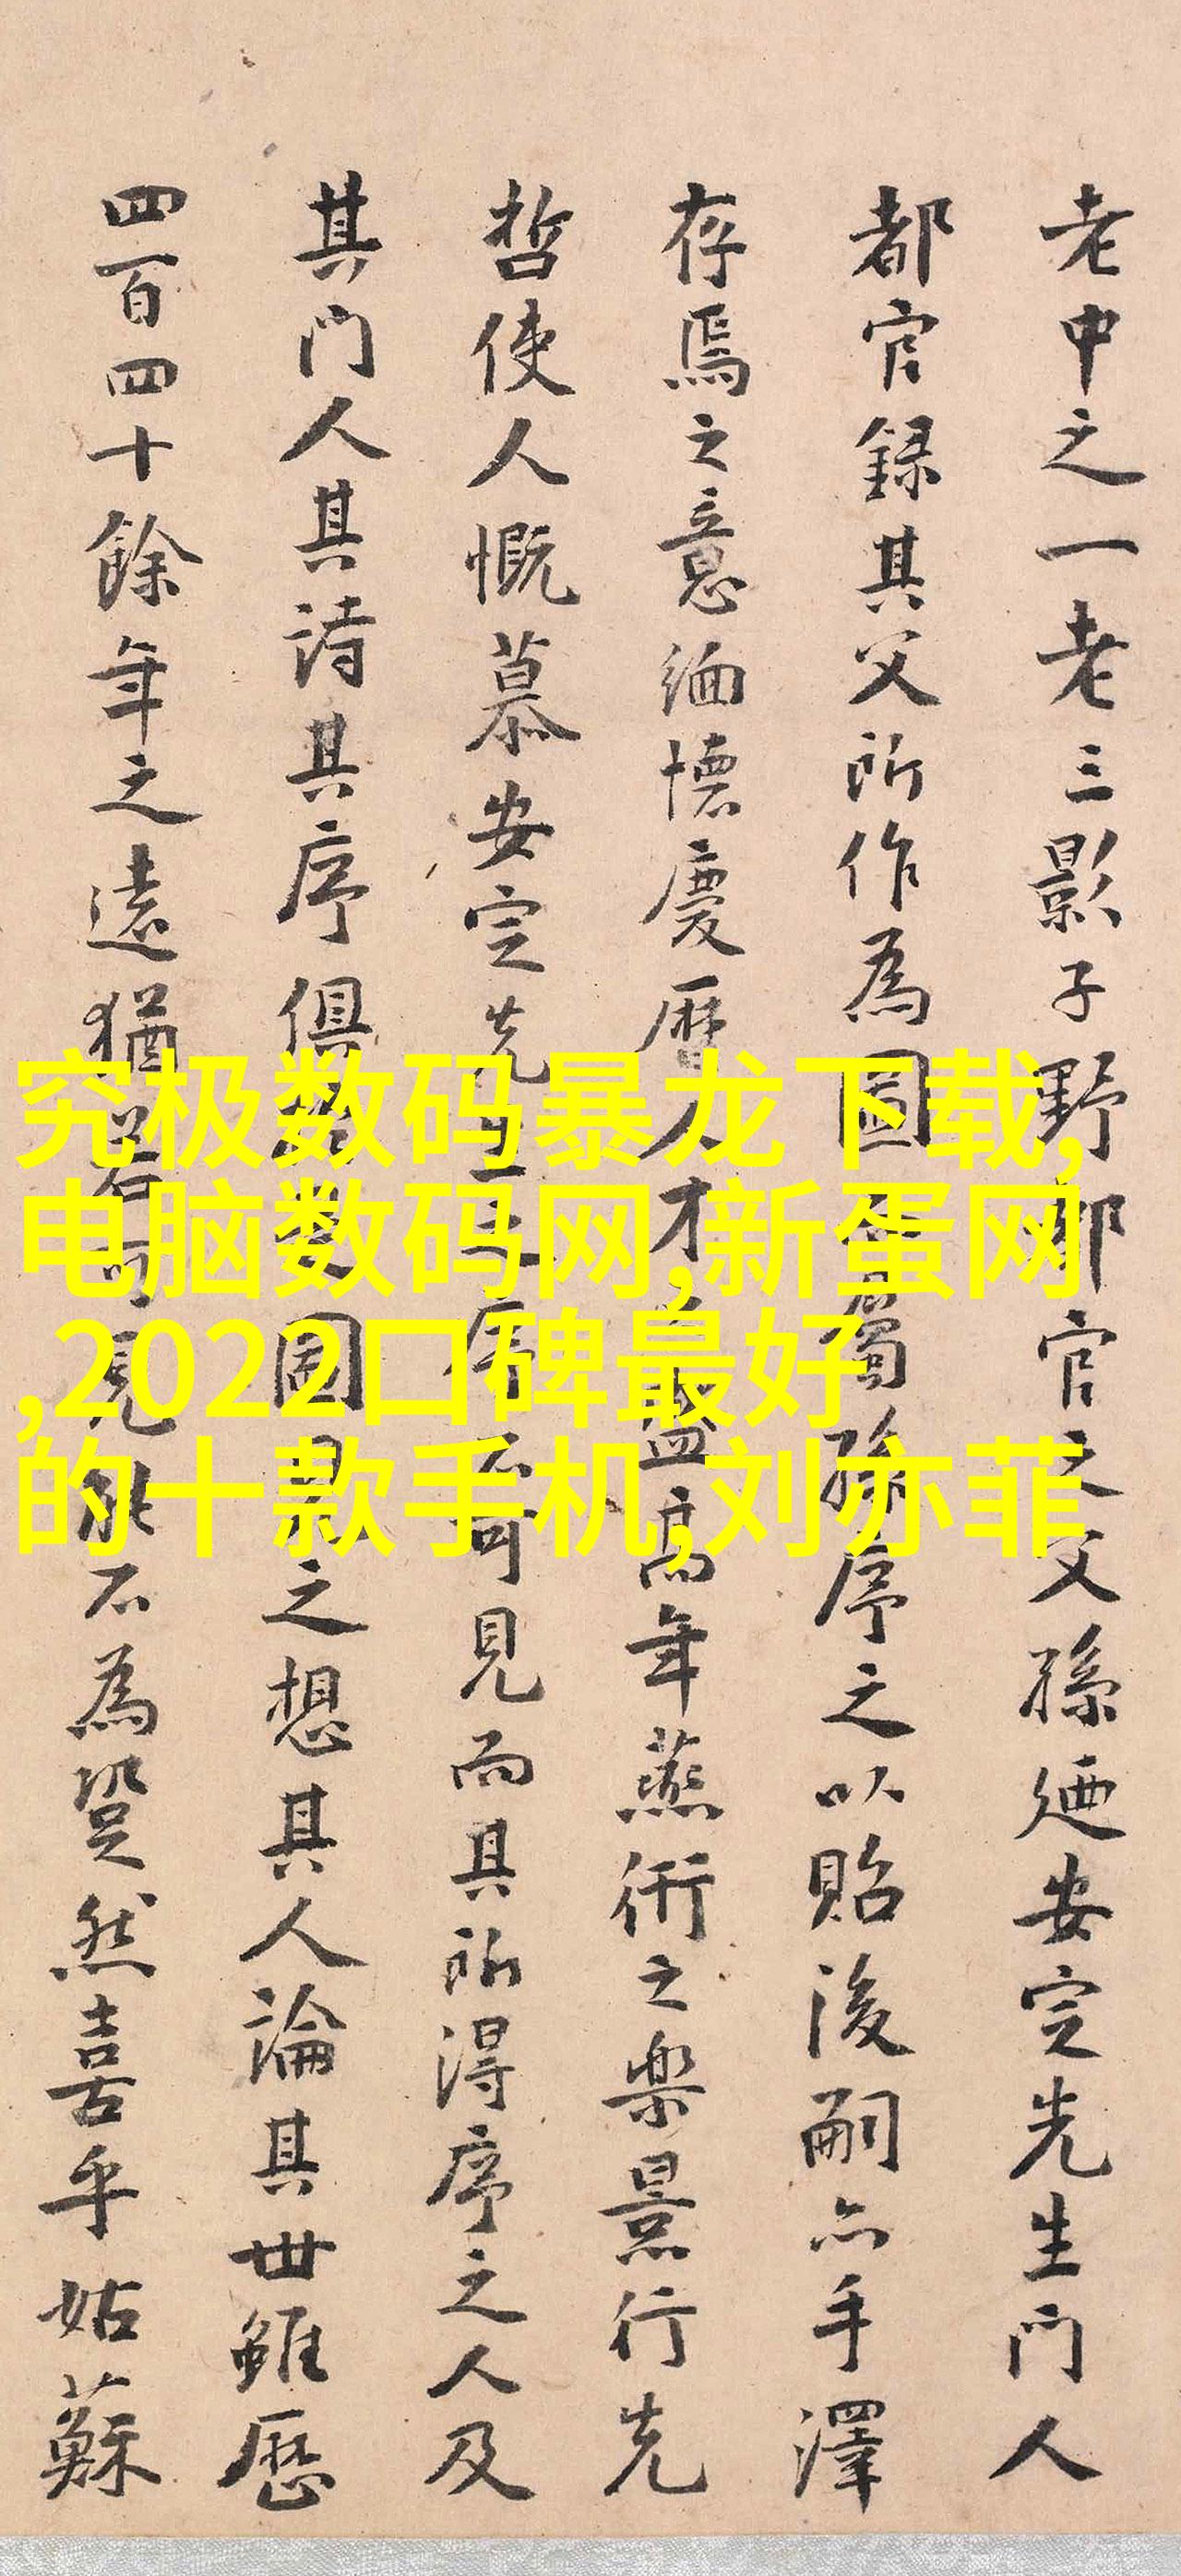 老中之一老三影子野都官之父孫廼安定先生門人
都官録其父所作為圖屬孫序之以貽後嗣亦手澤
存焉之意緬懷慶曆人才盛高年燕衎之樂景行先
哲使人慨慕安定先生序可見而其所得序之人及
其門人其詩其序俱圖之想其人論其世雖歷
四百四十餘年之遠猶若可見能不為跫然喜乎姑蘇
究极数码暴龙下载,
电脑数码网,新蛋网
,2022口碑最好
的十款手机,刘亦菲